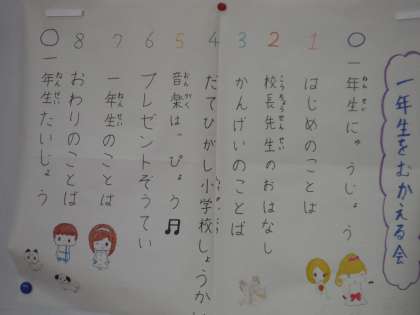 一年生をむかえる会
○ 一年生にゅうじょう
1 はじめのことば
2 校長先生のおはなし
3 かんげいのことば
4 だてひがし小学校しょうかい
5 音楽はっぴょう
6 プレゼントぞうてい
7 一年生のことば
8 おわりのことば
○ 一年生たいじょう